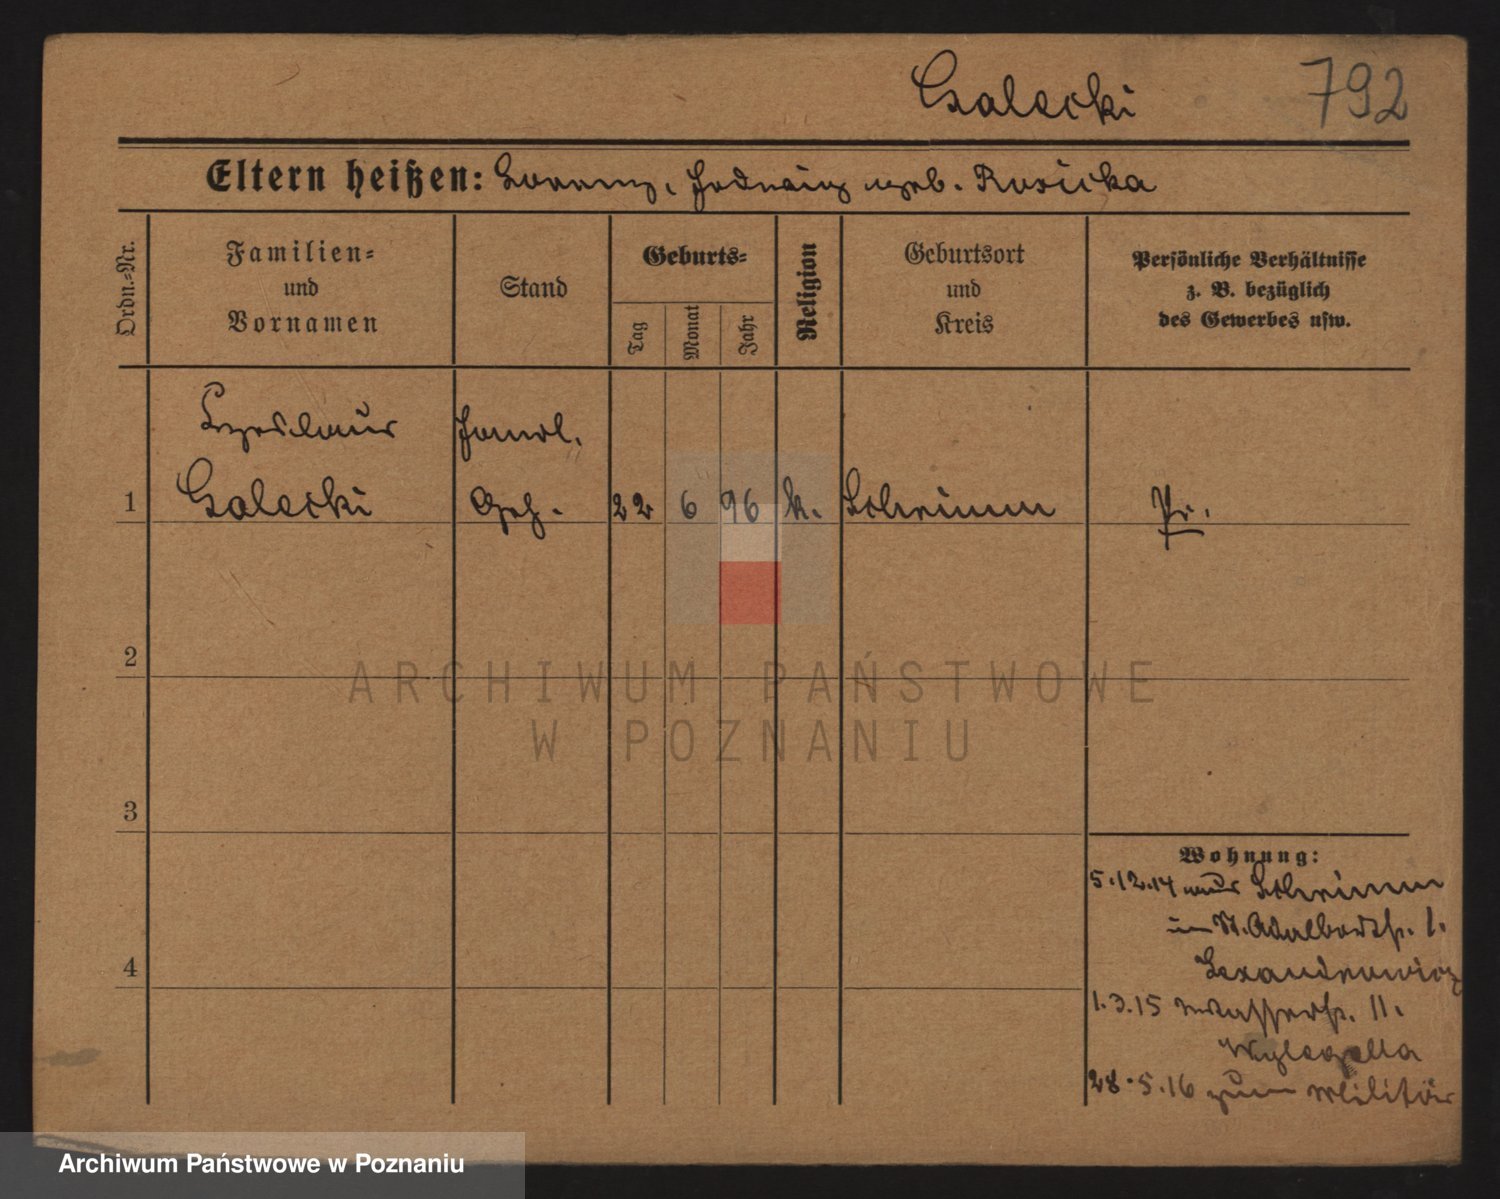 Galecki 792
Eltern heißen: Lorenz, Hedwig geb. Rosicka
Ordn.-Nr.
Familien-
und
Vornamen
Stand
Geburts-
Tag
Monat
Jahr
Religion
Geburtsort
und
Kreis
Persönliche Verhältnisse
z. B. bezüglich
des Gewerbes usw.
Czeslaus Handl.
1 Galecki Geh. 22 6 96 k. Schrimm Pr.
2
3
4
Wohnung:
5.12.14 aus Schrimm
in St. Adalbertstr. 1.
1.3.15 Wasserstr. 11.
28.5.16 zum Militär
ARCHIWUM PAŃSTWOWE
W POZNANIU
Archiwum Państwowe w Poznaniu